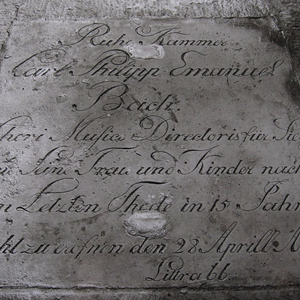 Ruhe Kammer
Carl Philipp Emanuel
Bach
Chori Musici Directoris für
Seine Frau und Kinder nach
Letzten Thode in 15 Jahr
zu eröfnen den 28 Aprill A
Littra bb